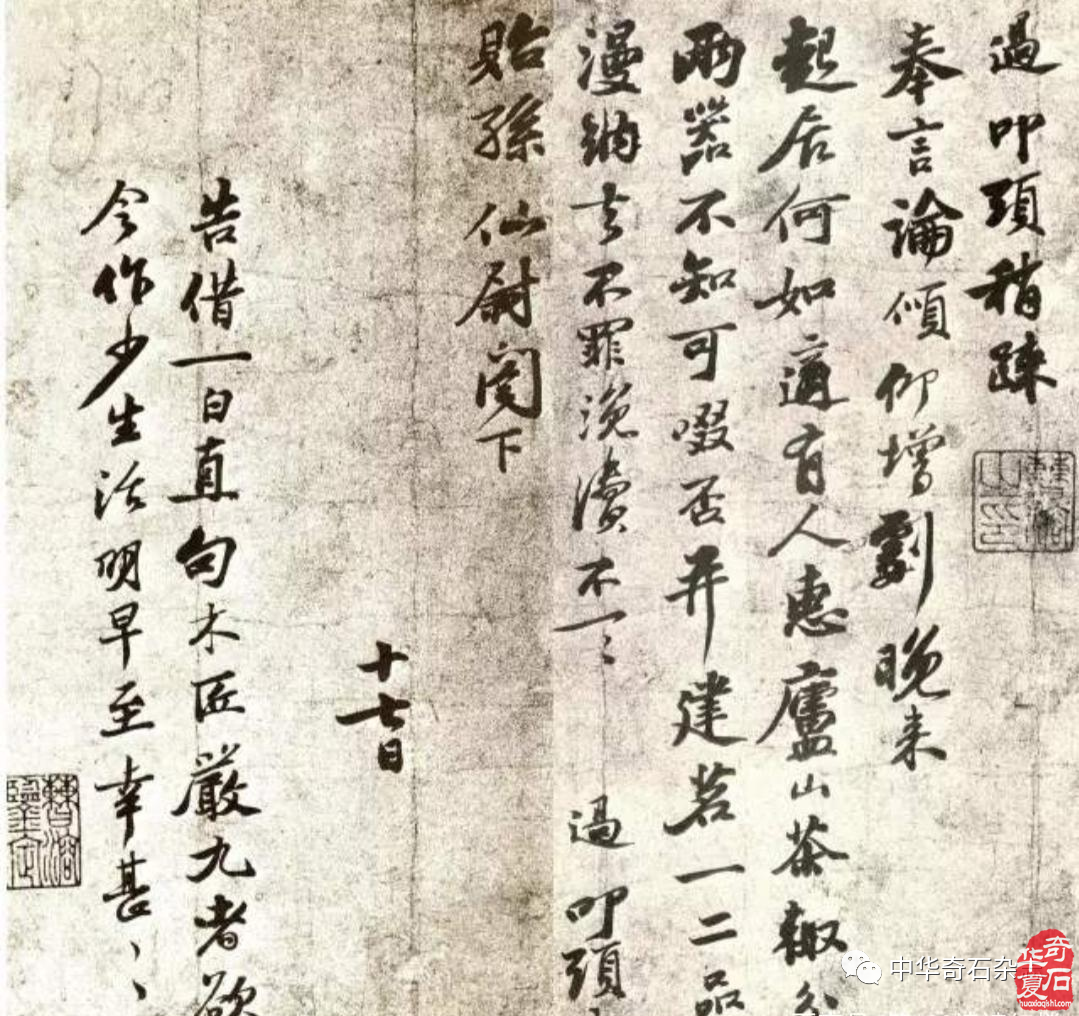 過叩頭稍疎
奉言論傾仰增劇晚来
起居何如適有人惠廬山茶輙分
兩器不知可啜否并建茗一二品
漫納去不罪浼瀆不一〻 過叩頭
貽孫仙尉閤下
十七日
告借一白直句木匠嚴九者欲
令作少生活明早至幸甚〻〻
中华奇石杂
华夏奇石
huaxiaqishi.com